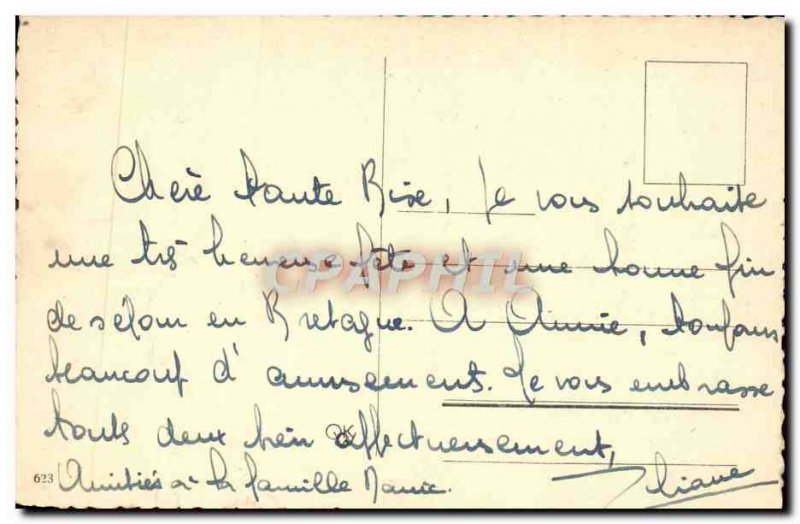 Chère tante Rise, Je vous souhaite
une très heureuse fête et une bonne fin
de séjour en Bretagne. A Annie, toujours
beaucoup d'amusement. Je vous embrasse
toutes deux bien affectueusement,
Amitiés à la famille
Liane
623
CPAPHIL